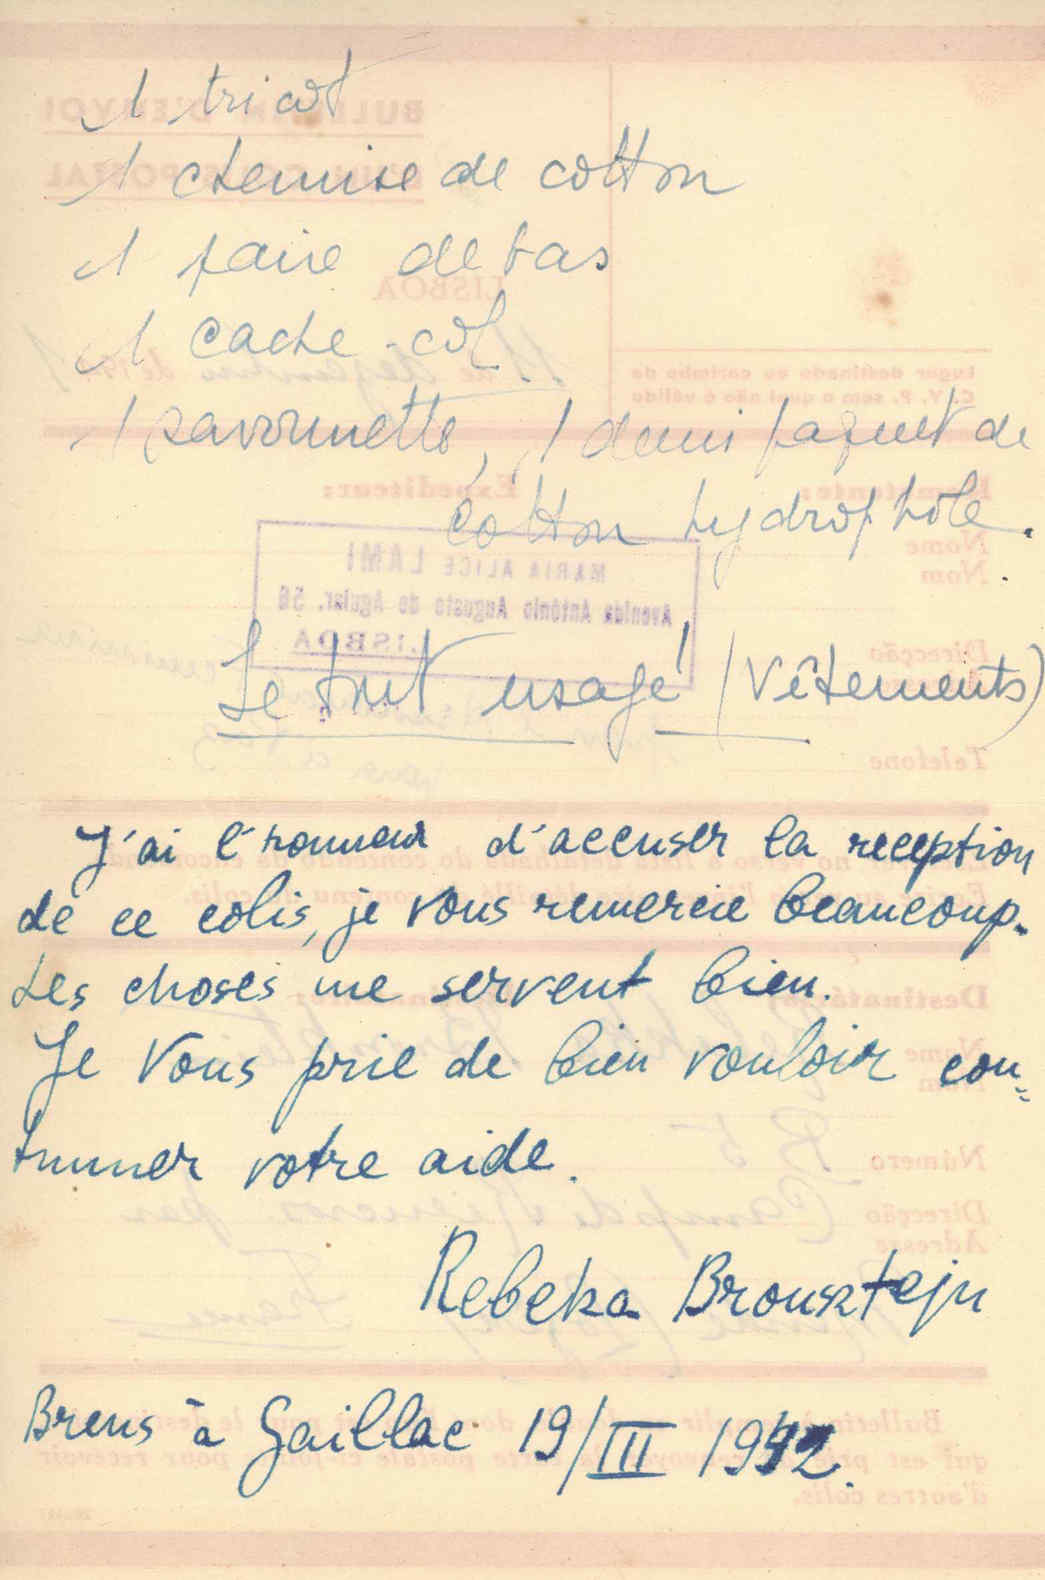 1 tricot
1 chemise de cotton
1 paire de bas
1 cache-col
1 savonnette, 1 demi paquet de
cotton hydrophile.
MARIA ALICE LAMI
Avenida António Augusto de Aguiar, 56
LISBOA
Le tout usagé (Vêtements)
J'ai l'honneur d'accuser la reception
de ce colis, je vous remercie beaucoup.
Les choses me servent bien.
Je Vous prie de bien vouloir con=
tinuer votre aide.
Rebeka Bronsztejn
Brens à Gaillac 19/III 1942.